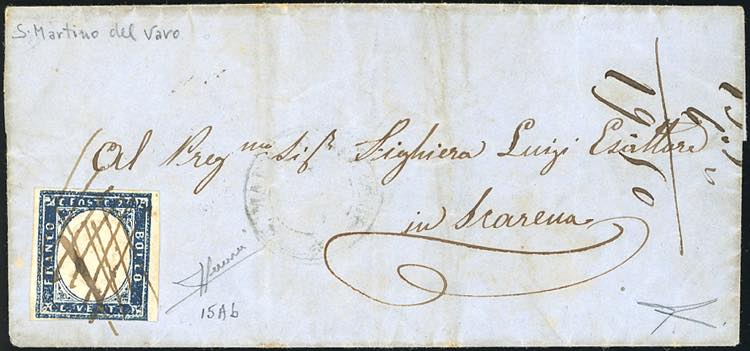 S. Martino del Varo
Al Preg.mo Sig.r Fighiera Luigi Esattore
in Scarena
1950
C. POSTE 20
FRANCO
BOLLO
C. VENTI
15Ab